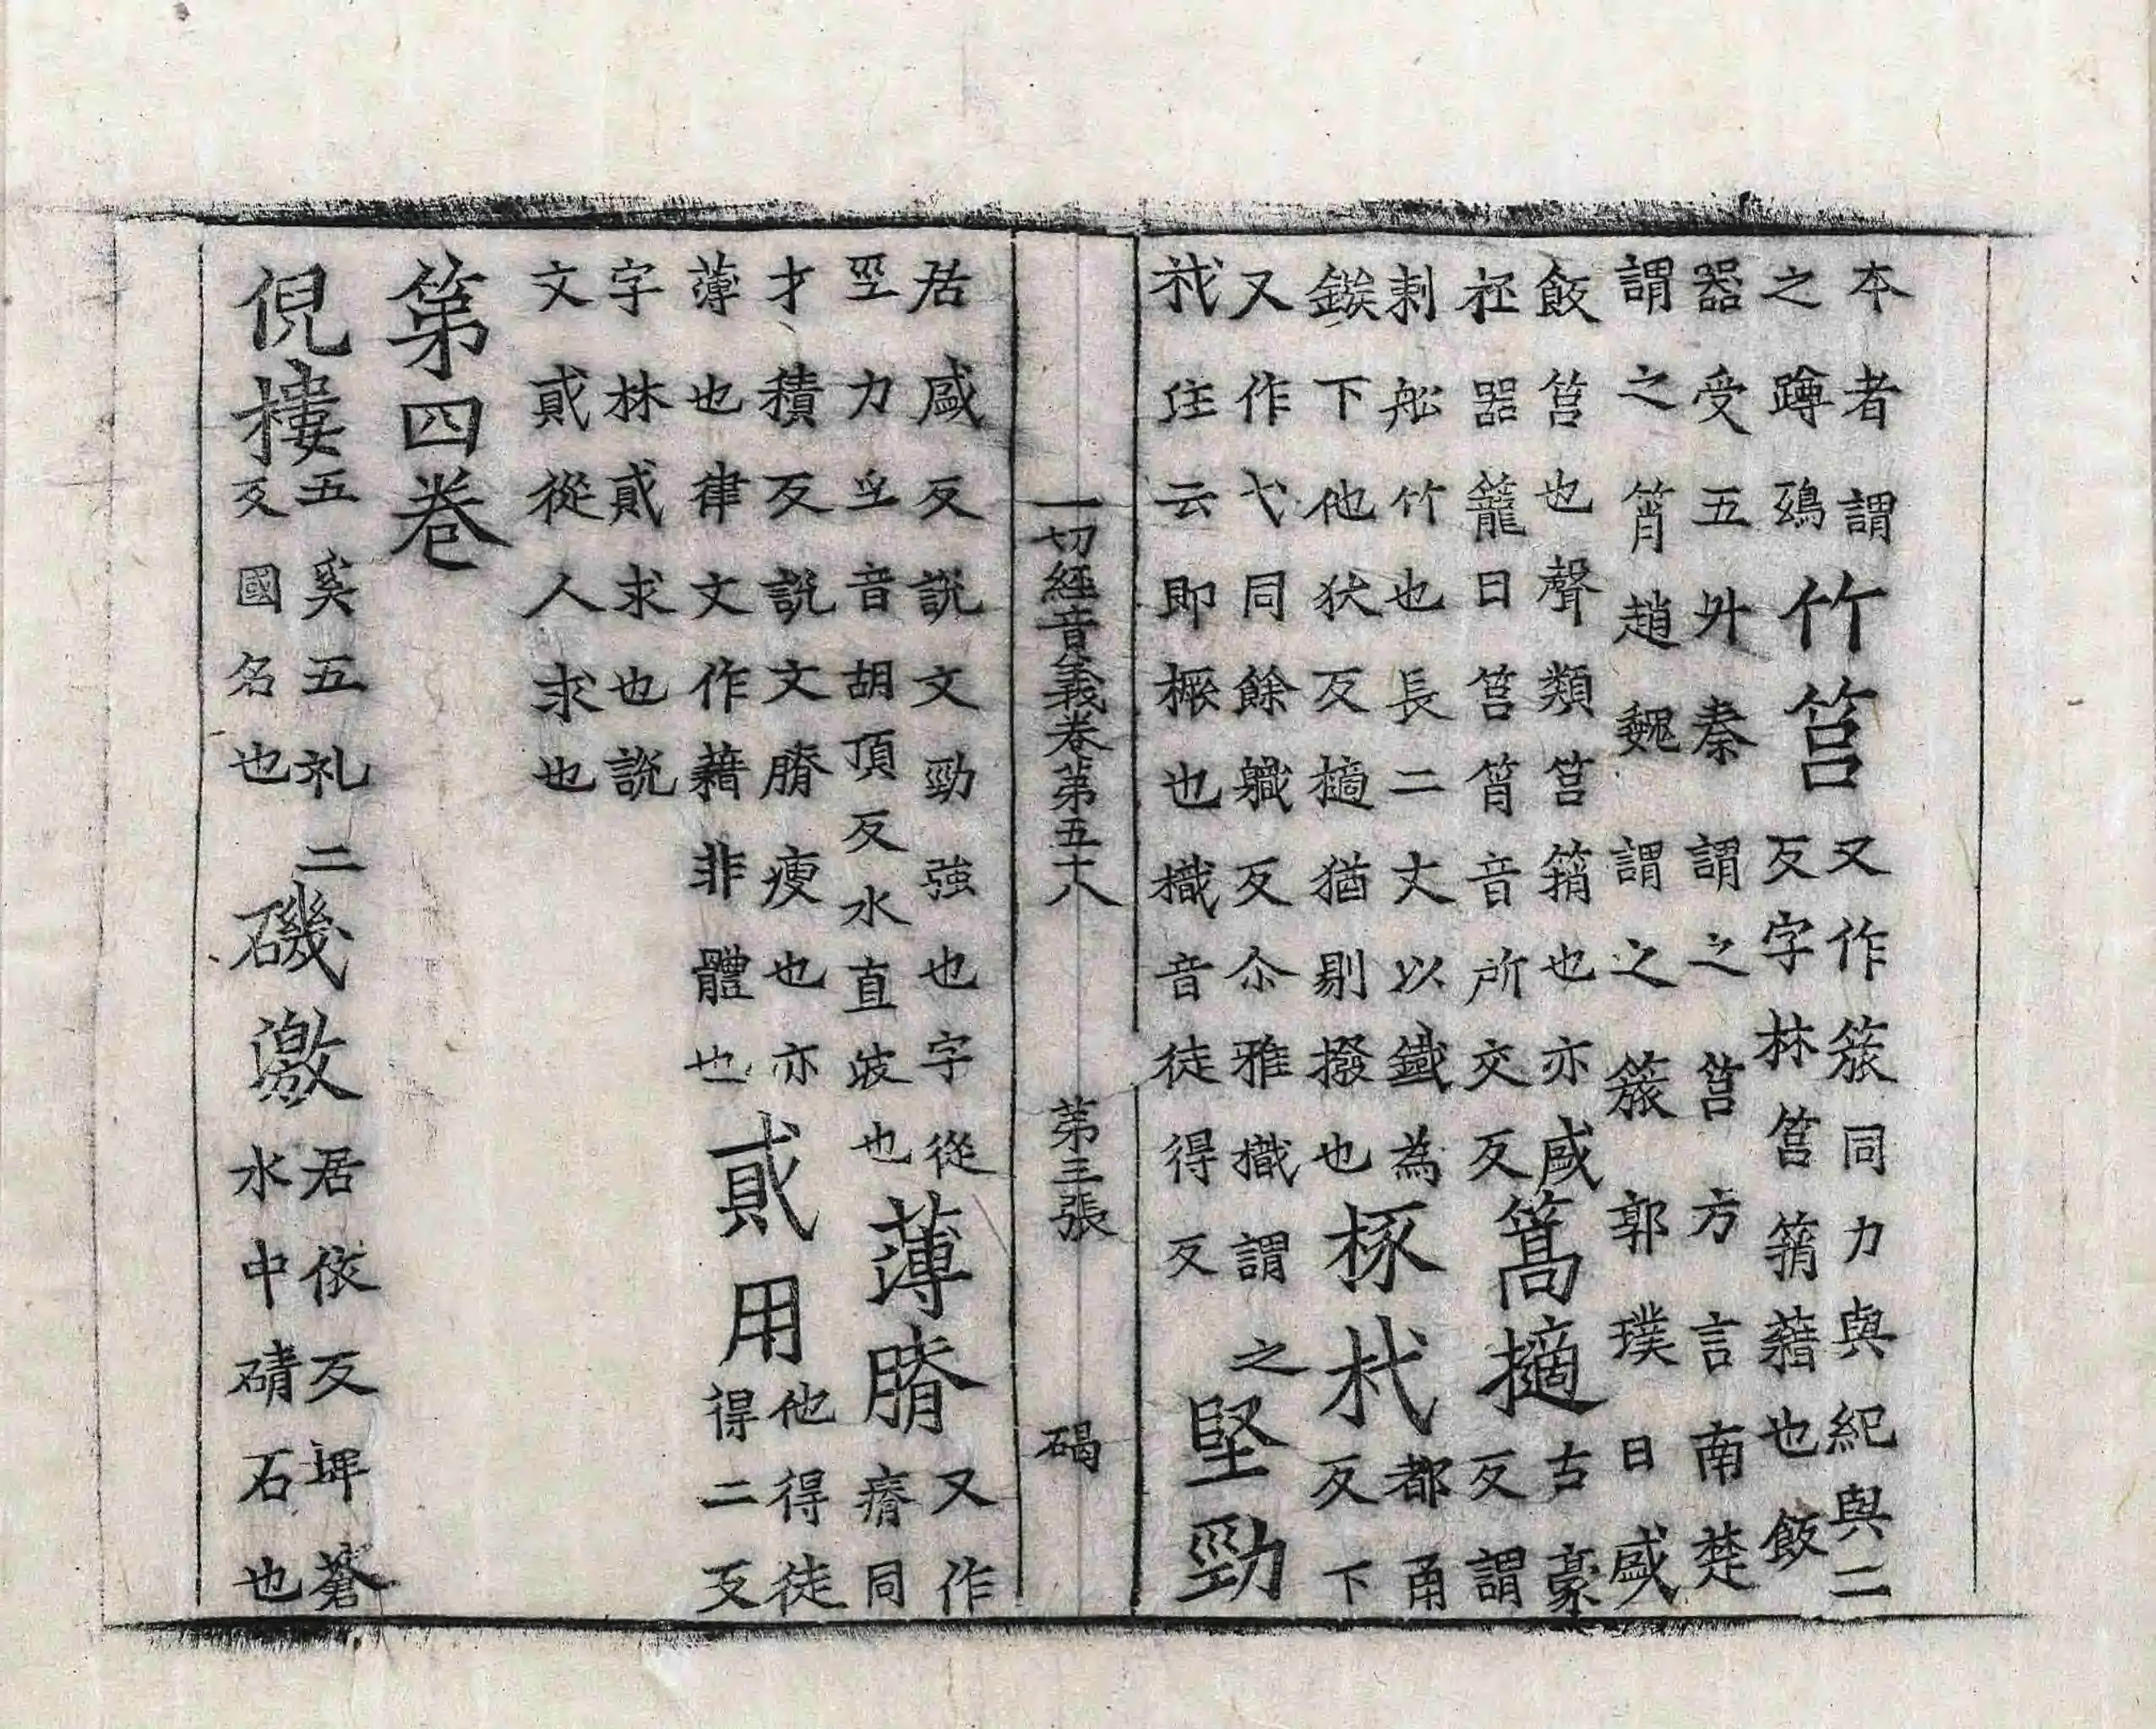 本者謂之蹲鵄竹筥又作䉛同力與紀與二反字林筥筲藉也飯
器受五升秦謂之筥方言南楚謂之筲趙魏謂之䉛郭璞曰盛
飯筥也聲類筥箱也亦盛柸器籠曰筥筲音所交反篙擿古豪反謂
刺舩竹也長二丈以鐵為鏃下他狄反擿猶剔撥也椓杙都甬反下
又作弋同餘職反尒雅樴謂之杙住云即橛也樴音徒得反堅勁
一切經音義卷第五十八 第三張 碣
居盛反說文勁強也字從巠力巠音胡頂反水直波也薄膌又作瘠同
才積反說文膌瘦也亦薄也律文作藉非體也貣用他得徒得二反
字林貣求也說文貣從人求也
第四卷
倪樓五奚五礼二反國名也磯激居依反埤蒼水中磧石也